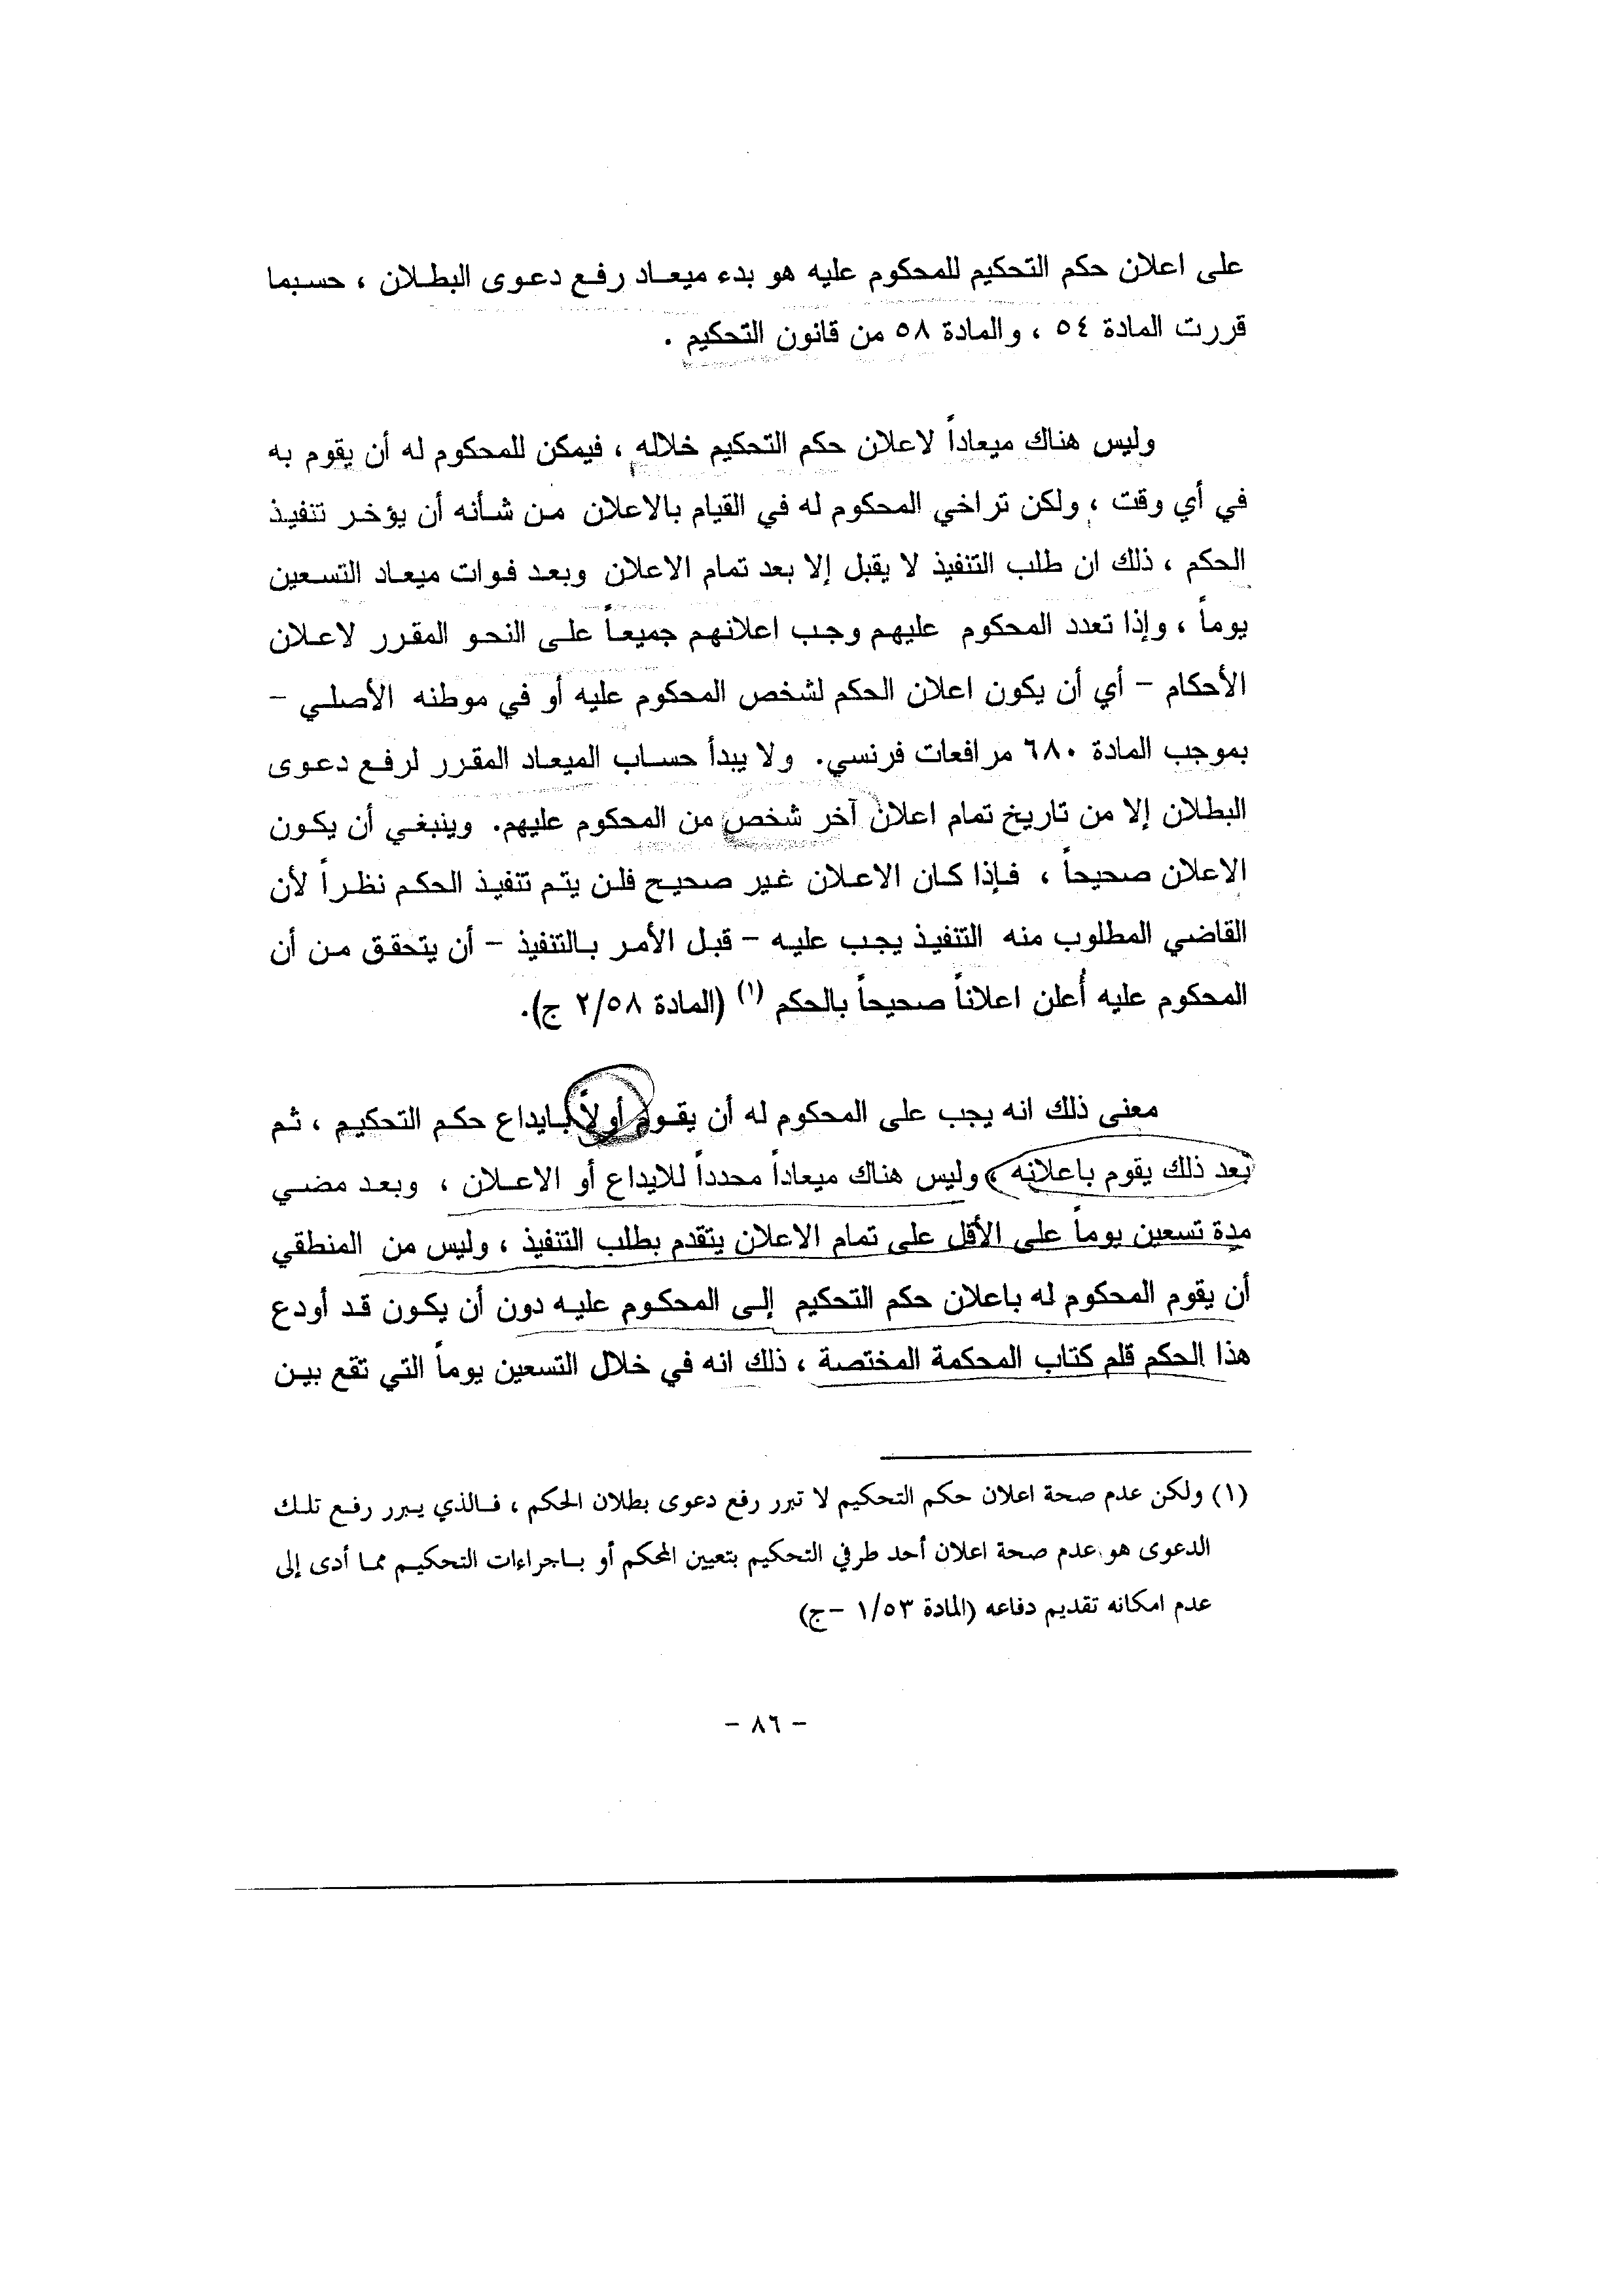 على اعلان حكم التحكيم للمحكوم عليه هو بدء ميعاد رفع دعوى البطلان ، حسبما
قررت المادة ٥٤ ، والمادة ٥٨ من قانون التحكيم .
وليس هناك ميعاداً لاعلان حكم التحكيم خلاله ، فيمكن للمحكوم له أن يقوم به
في أي وقت ، ولكن تراخي المحكوم له في القيام بالاعلان من شأنه أن يؤخر تنفيذ
الحكم ، ذلك ان طلب التنفيذ لا يقبل إلا بعد تمام الاعلان وبعد فوات ميعاد التسعين
يوماً ، وإذا تعدد المحكوم عليهم وجب اعلانهم جميعاً على النحو المقرر لاعلان
الأحكام – أي أن يكون اعلان الحكم لشخص المحكوم عليه أو في موطنه الأصلي –
بموجب المادة ٦٨٠ مرافعات فرنسي. ولا يبدأ حساب الميعاد المقرر لرفع دعوى
البطلان إلا من تاريخ تمام اعلان آخر شخص من المحكوم عليهم. وينبغي أن يكون
الاعلان صحيحاً ، فإذا كان الاعلان غير صحيح فلن يتم تنفيذ الحكم نظراً لأن
القاضي المطلوب منه التنفيذ يجب عليه – قبل الأمر بالتنفيذ – أن يتحقق من أن
المحكوم عليه أُعلن اعلاناً صحيحاً بالحكم (١) (المادة ٢/٥٨ ج).
معنى ذلك انه يجب على المحكوم له أن يقوم أولاً بايداع حكم التحكيم ، ثم
بعد ذلك يقوم باعلانه ، وليس هناك ميعاداً محدداً للايداع أو الاعلان ، وبعد مضي
مدة تسعين يوماً على الأقل على تمام الاعلان يتقدم بطلب التنفيذ ، وليس من المنطقي
أن يقوم المحكوم له باعلان حكم التحكيم إلى المحكوم عليه دون أن يكون قد أودع
هذا الحكم قلم كتاب المحكمة المختصة ، ذلك انه في خلال التسعين يوماً التي تقع بين
(١) ولكن عدم صحة اعلان حكم التحكيم لا تبرر رفع دعوى بطلان الحكم ، فالذي يبرر رفع تلك
الدعوى هو عدم صحة اعلان أحد طرفي التحكيم بتعيين المحكم أو باجراءات التحكيم مما أدى إلى
عدم امكانه تقديم دفاعه (المادة ١/٥٣ –ج)
– ٨٦ –